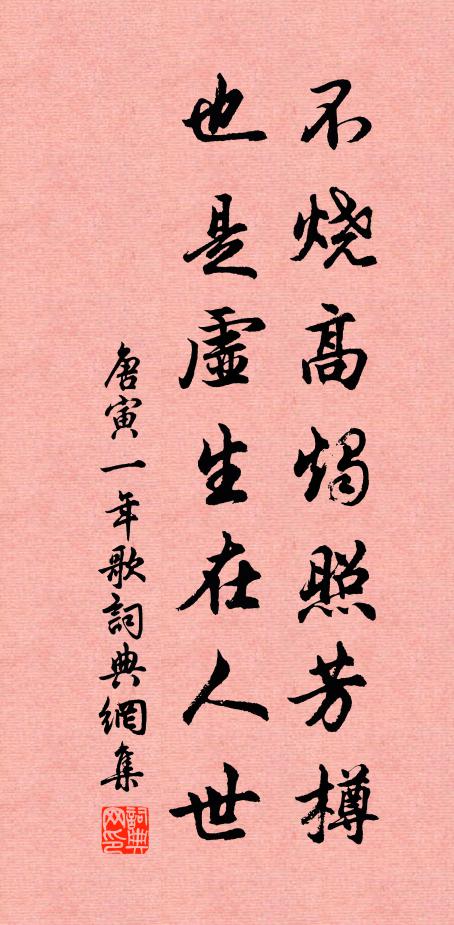 不烧高烛照芳樽
也是虚生在人世
唐寅一年歌詞典網集
詞典網印